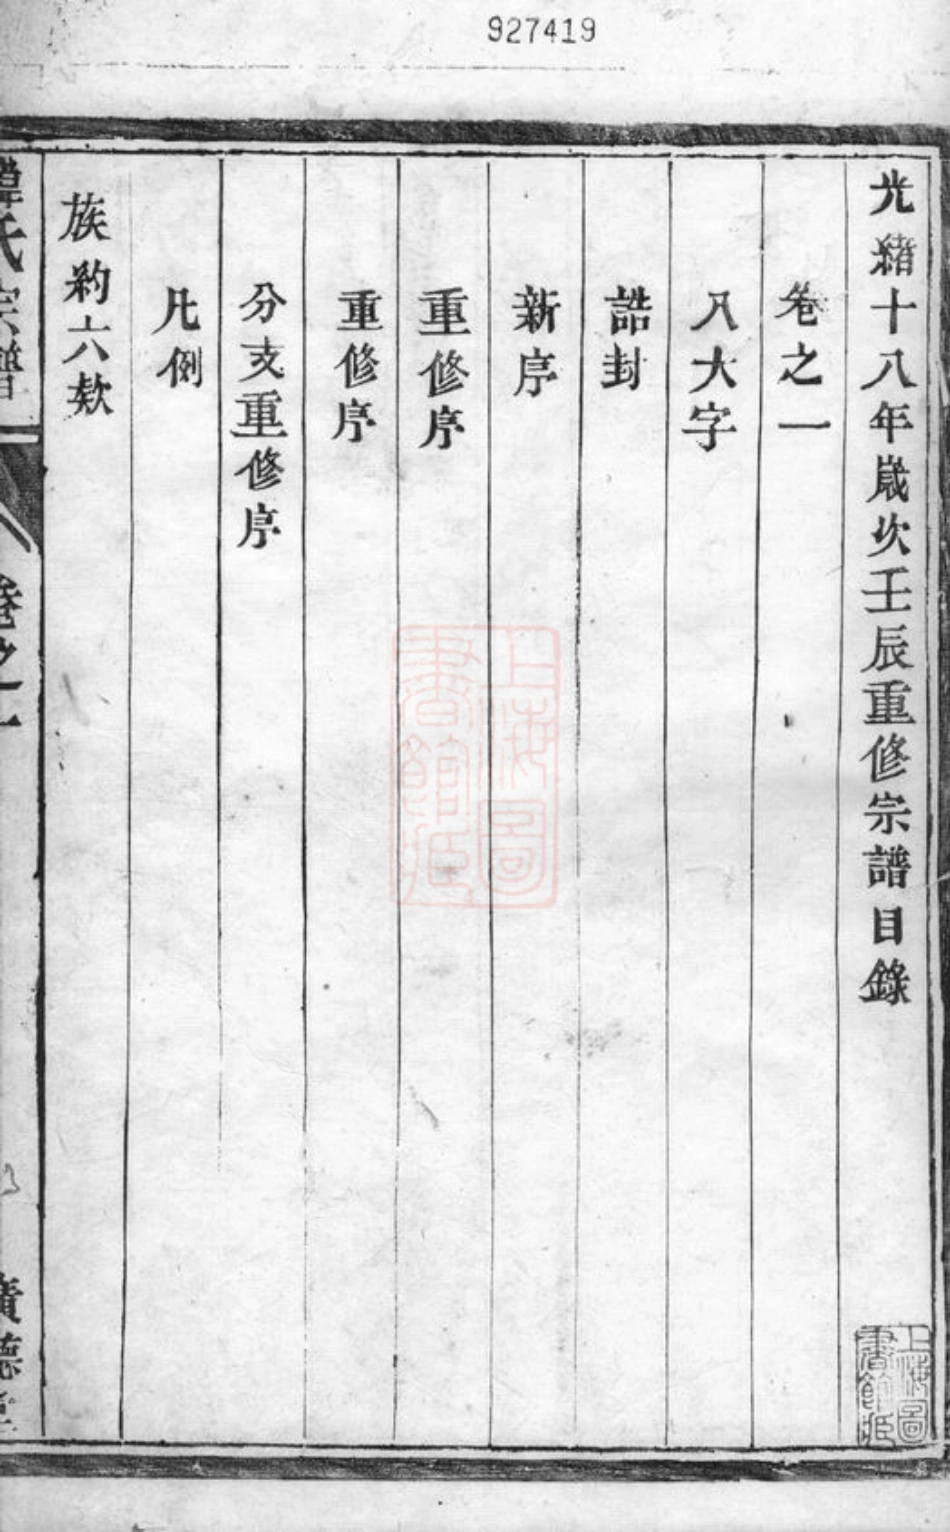 927419
光緒十八年嵗次壬辰重修宗譜目錄
卷之一
八大字
誥封
新序
重修序
重修序
分支重修序
凡例
族約六欵
氏宗譜
卷之一
廣德堂
上海圖書館藏
上海圖書館藏